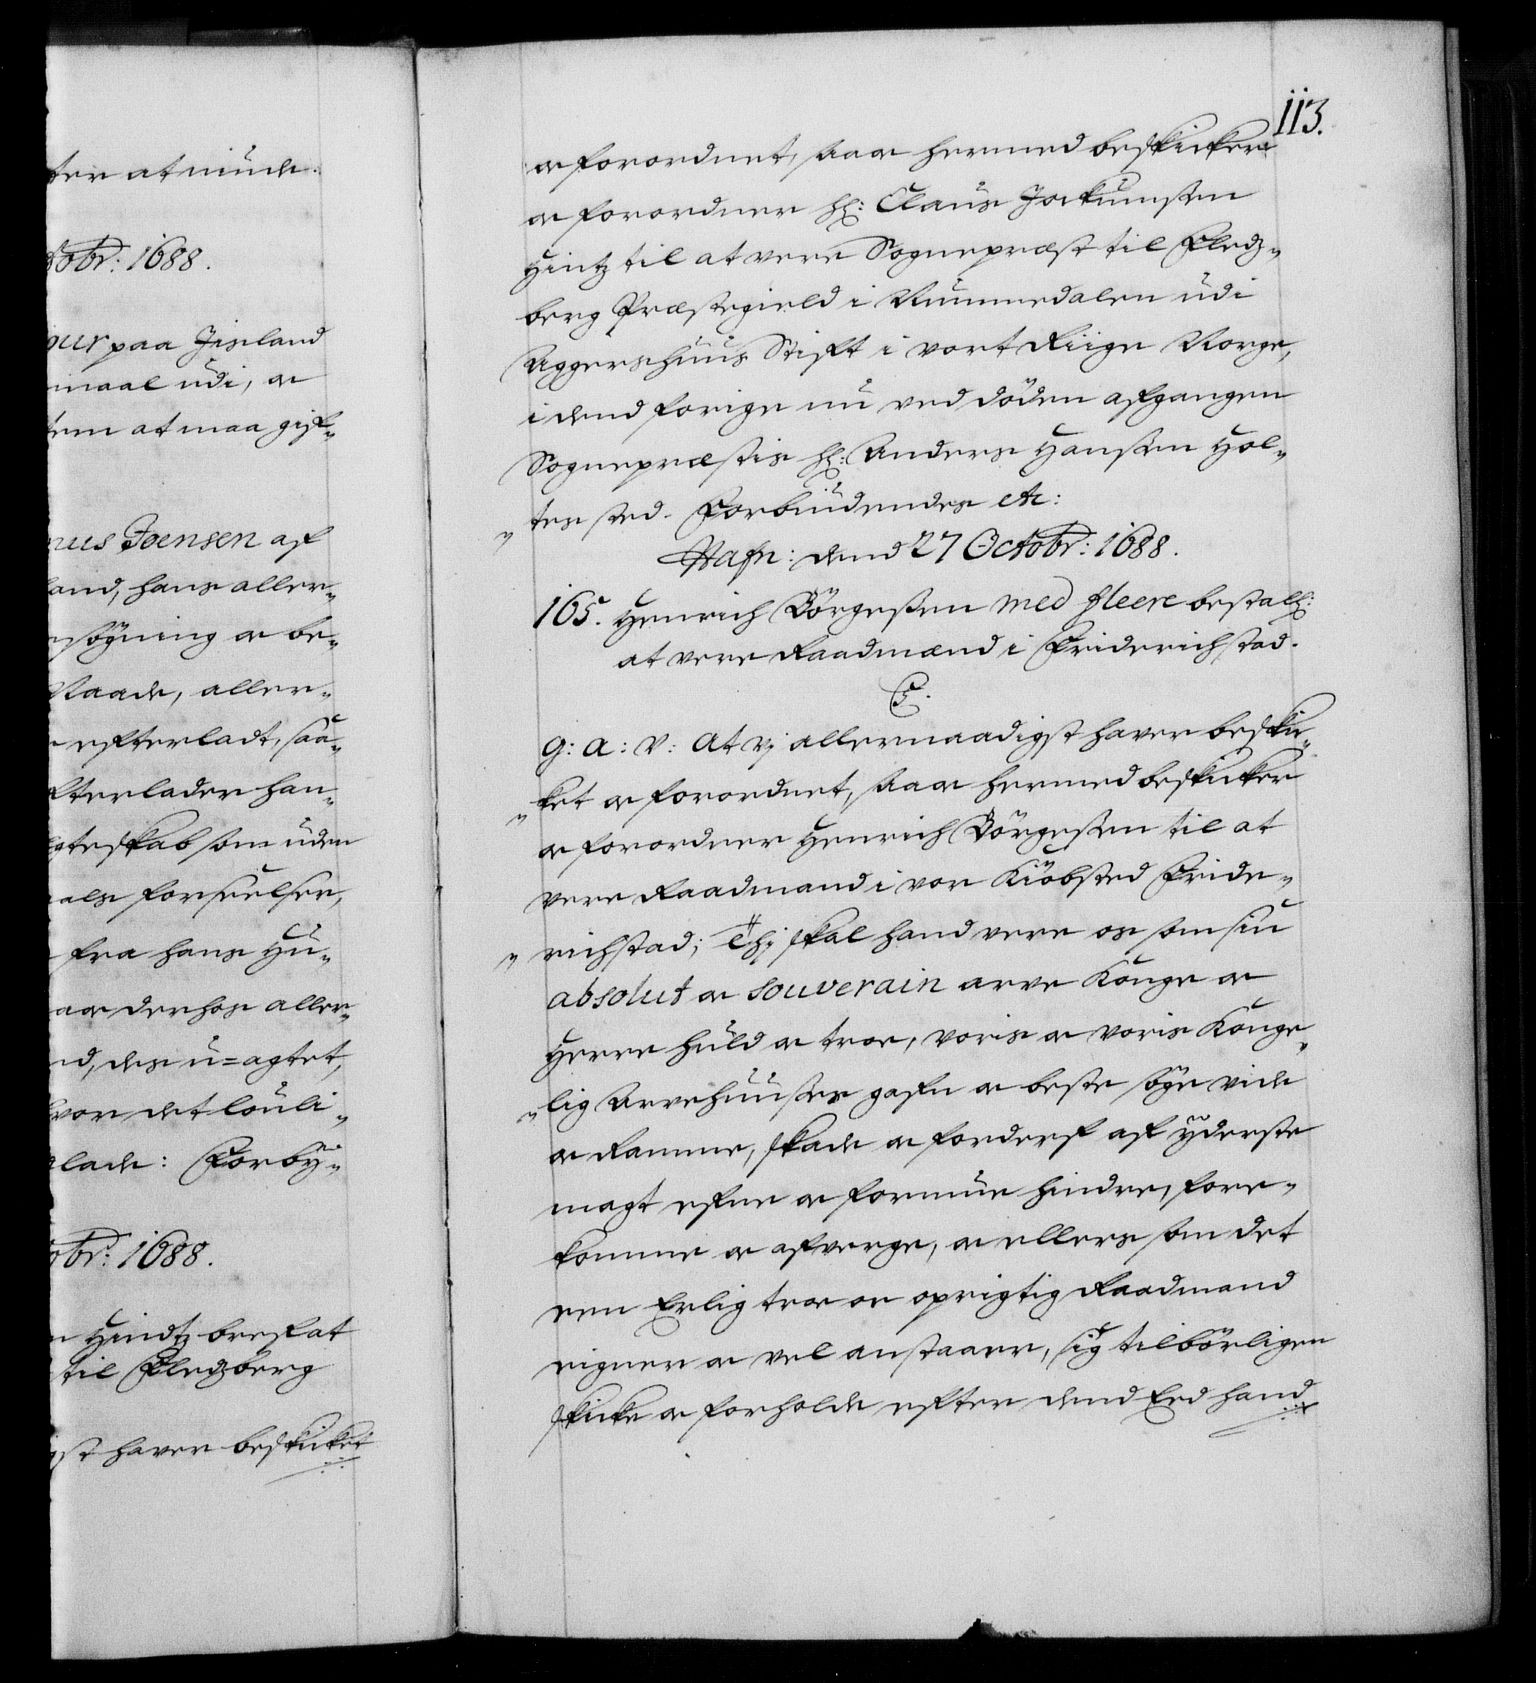 ter at niude.
tobr: 1688.
our paa Jisland
maal udi, oc
tem at maa gif-
nus Joensen af
land, hans aller-
nsögning oc be-
Naade, aller-
efterladt, saa-
fterlader han-
gteskab som uden
als forseelser,
fra hans Hu-
oc derhos aller-
nd, des u=agtet,
vor det louli-
lade: Forbÿ-
obr: 1688.
n Hindtz bref at
til Flegberg
gst haver beskicket
113.
oc forordnet, saa oc hermed beskicker
oc forordner hr: Claus Jockumsen
Hintz til at vere Sognepræst til Fleg-
berg Præstegield i Nummedalen udi
Aggershuus Stift i vort Riige Norge,
i dend forige nu ved döden afgangen
Sognepræstis hr: Anders Hansen Hol-
tes sted. Forbiudendes etc:
Hafn: dend 27 Octobr: 1688.
165. Henrich Börgesen med fleere bestalh:
at vere Raadmænd i Friderichstad.
C5.
G: A: V: At vi allernaadigst haver beski-
cket oc forordnet, saa oc hermed beskicker
oc forordner Henrich Börgesen til at
vere Raadmand i vor Kiöbsted Fride-
richstad; Thi skal hand vere os som sin
absolut oc souverain arve Konge oc
Herre huld oc troe, voris oc voris Konge-
lig Arvehuuses gafn oc beste söge vide
oc ramme, skade oc forderf af ÿderste
magt efne oc formue hindre, fore-
komme oc afverge, oc ellers som det
een Erlig troe oc oprigtig Raadmand
eigner oc vel anstaaer, sig tilbörligen
skicke oc forholde efter dend Eed hand